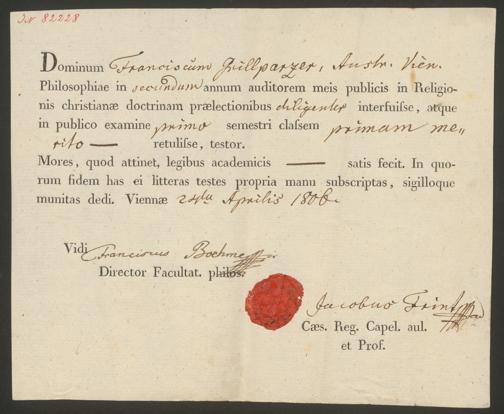 I.N. 82228
Dominum Franciscum Grillparzer, Austr. Vien.
Philosophiae in secundum annum auditorem meis publicis in Religio-
nis christianæ doctrinam prælectionibus diligenter interfuiſse, atque
in publico examine primo semestri claſsem primam me„
rito — retuliſse, testor.
Mores, quod attinet, legibus academicis — satis fecit. In quo-
rum fidem has ei litteras testes propria manu subscriptas, sigilloque
munitas dedi. Viennæ Aprilis 1806.
Vidi Franciscus Boehme
Director Facultat. philos.
Jacobus Frint
Cæs. Reg. Capel. aul.
et Prof.